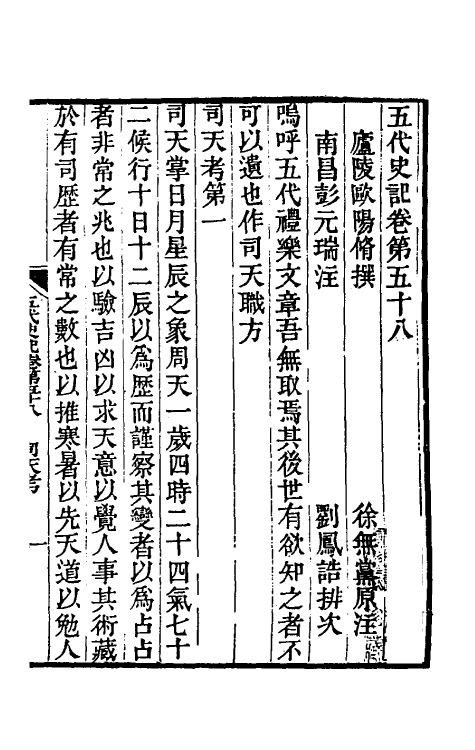 五代史記卷第五十八
廬陵歐陽脩撰 徐無黨原注
南昌彭元瑞注 劉鳳誥排次
嗚呼五代禮樂文章吾無取焉其後世有欲知之者不
可以遺也作司天職方
司天考第一
司天掌日月星辰之象周天一歲四時二十四氣七十
二候行十日十二辰以爲歷而謹察其變者以爲占占
者非常之兆也以驗吉凶以求天意以覺人事其術藏
於有司歷者有常之數也以推寒暑以先天道以勉人
五代史記卷第五十八 司天考 一